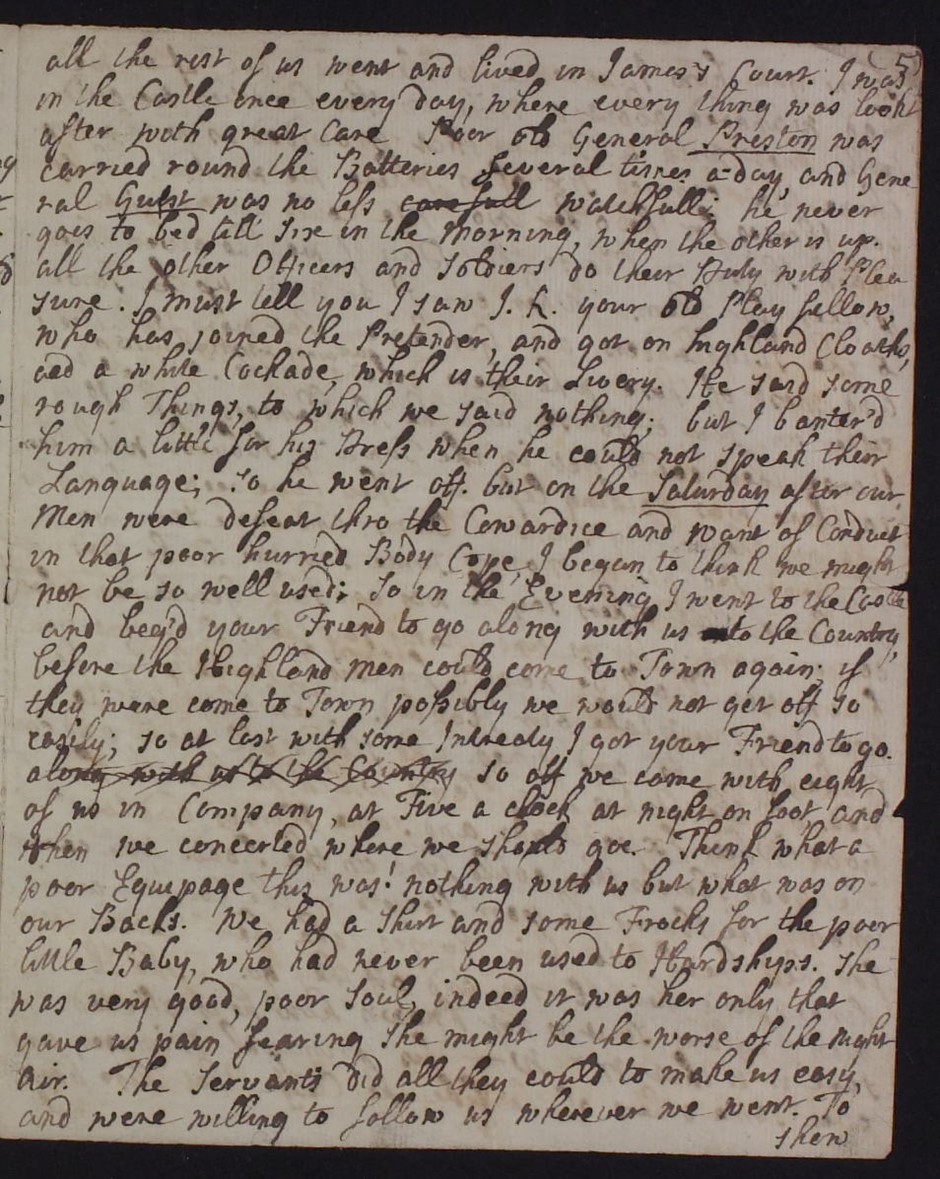 5
all the rest of us went and lived in James's Court. I was
in the Castle once every day, where every thing was lookt
after with great Care Poor old General Preston was
carried round the Batteries several times a-day, and Gene
ral Guest was no less carefull watchfull; he never
goes to bed till Five in the Morning, when the other is up.
all the other Officers and Soldiers do their Duty with Plea
sure. I must tell you I saw J. h. your old Play fellow,
who has joined the Pretender, and got on highland Cloaths,
and a white Cockade, which is their Livery. He said some
rough Things, to which we said nothing; but I banter'd
him a little for his Dress when he could not speak their
Language; so he went off. but on the Saturday after our
Men were defeat thro the Cowardice and want of Conduct
in that poor hurried Body Cope, I began to think we might
not be so well used; So in the Evening I went to the Castle
and beg'd your Friend to go along with us to the Country,
before the Highland men could come to Town again; if
they were come to Town possibly we would not get off so
easily; so at last with some Intreaty I got your Friend to go.
along with us to the Country so off we came with eight
of us in Company, at Five a clock at night on foot, and
then we concerted where we should goe. Think what a
poor Equipage this was! nothing with us but what was on
our Backs. We had a Shirt and some Frocks for the poor
little Baby, who had never been used to Hardships. She
was very good, poor Soul, indeed it was her only that
gave us pain fearing She might be the worse of the night
air. The Servants did all they could to make us easy,
and were willing to follow us wherever we went. To
shew